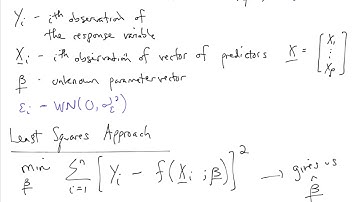 Yi - ith observation of
the response variable
Xi - ith observation of vector of predictors X = [X1 ⋮ Xp]
β - unknown parameter vector
εi - WN(0, σε²)
Least Squares Approach
min β Σ i=1 n [Yi - f(Xi ; β)]² → gives us β̂